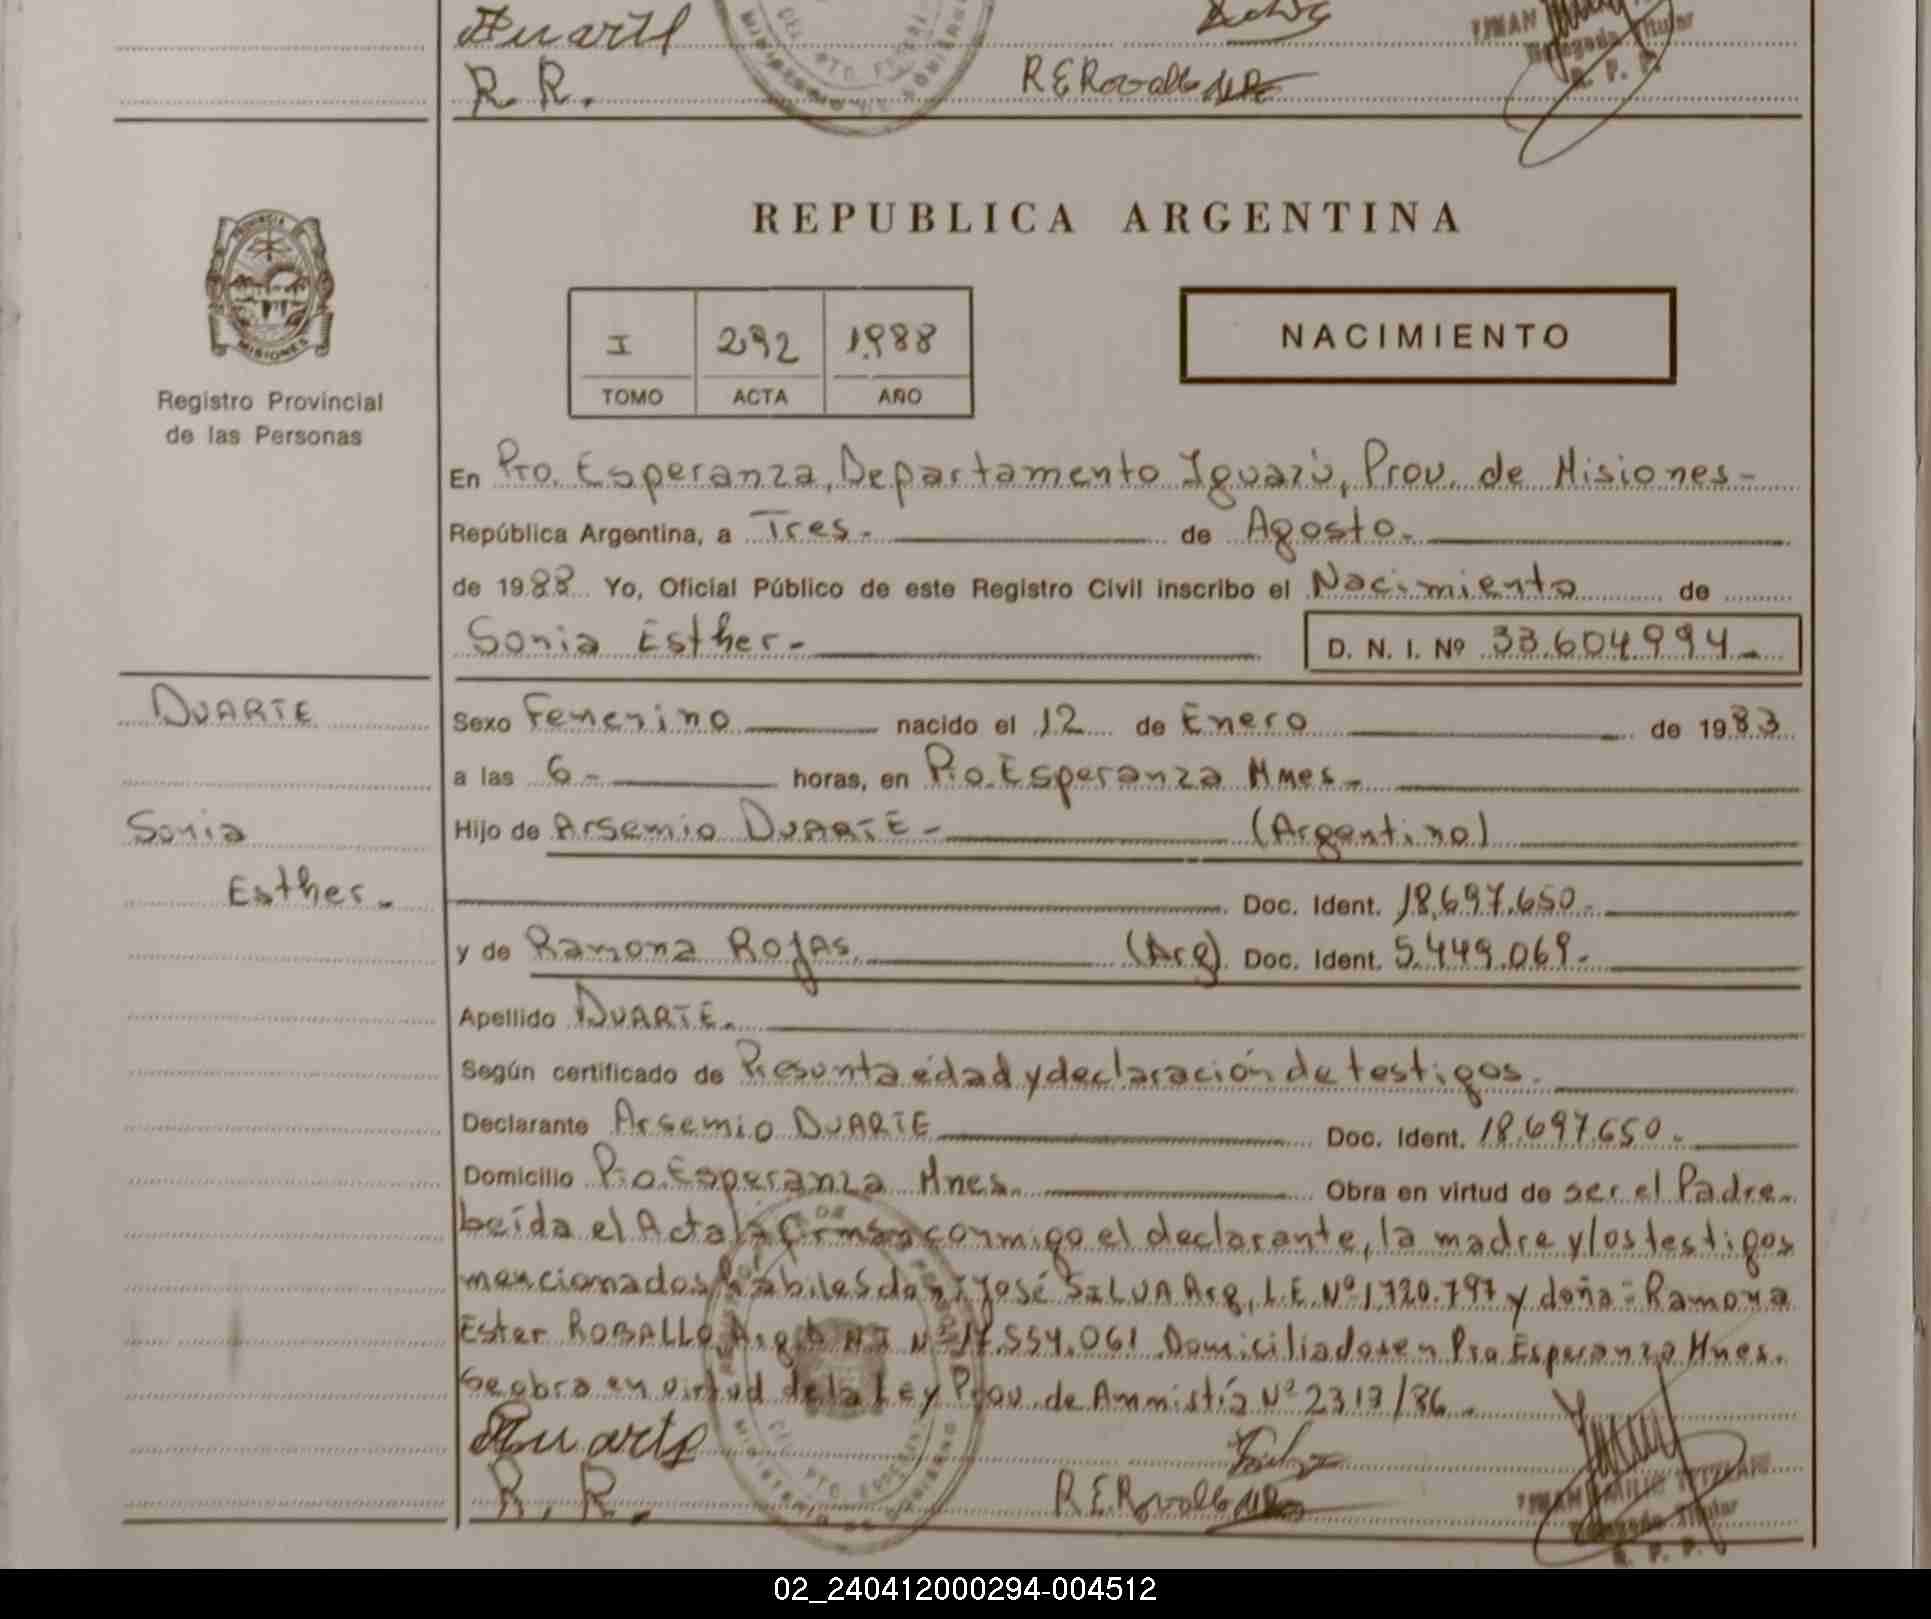 Duarte
R. R.
R E Rovallo
Delegado Titular
R. P. P.
REPUBLICA ARGENTINA
PROVINCIA
MISIONES
Registro Provincial
de las Personas
I 292 1988
TOMO ACTA AÑO
NACIMIENTO
En Pto. Esperanza, Departamento Iguazú, Prov. de Misiones-
República Argentina, a Tres.- de Agosto.-
de 1988 Yo, Oficial Público de este Registro Civil inscribo el Nacimiento de
Sonia Esther- D. N. I. Nº 33.604.994-
DUARTE
Sonia
Esther-
Sexo Femenino nacido el 12 de Enero de 1983
a las 6- horas, en Pto. Esperanza Mnes-
Hijo de Arsemio DUARTE- (Argentino)
Doc. Ident. 18.697.650-
y de Ramona Rojas (Arg) Doc. Ident. 5.449.069-
Apellido DUARTE.
Según certificado de Presunta edad y declaración de testigos.
Declarante Arsemio DUARTE Doc. Ident. 18.697.650-
Domicilio Pto. Esperanza Mnes. Obra en virtud de ser el Padre.
Leída el Acta la firman conmigo el declarante, la madre y los testigos
mencionados hábiles don: José SILVA Arg, L.E. Nº 1.720.797 y doña: Ramona
Ester ROBALLO Arg D.N.I Nº 17.554.061 Domiciliados en Pto Esperanza Mnes.
Se obra en virtud de la Ley Prov. de Ammistía Nº 2313/86.
Duarte
R. R.
R.E. Rovallo
Delegado Titular
R. P. P.
02_240412000294-004512